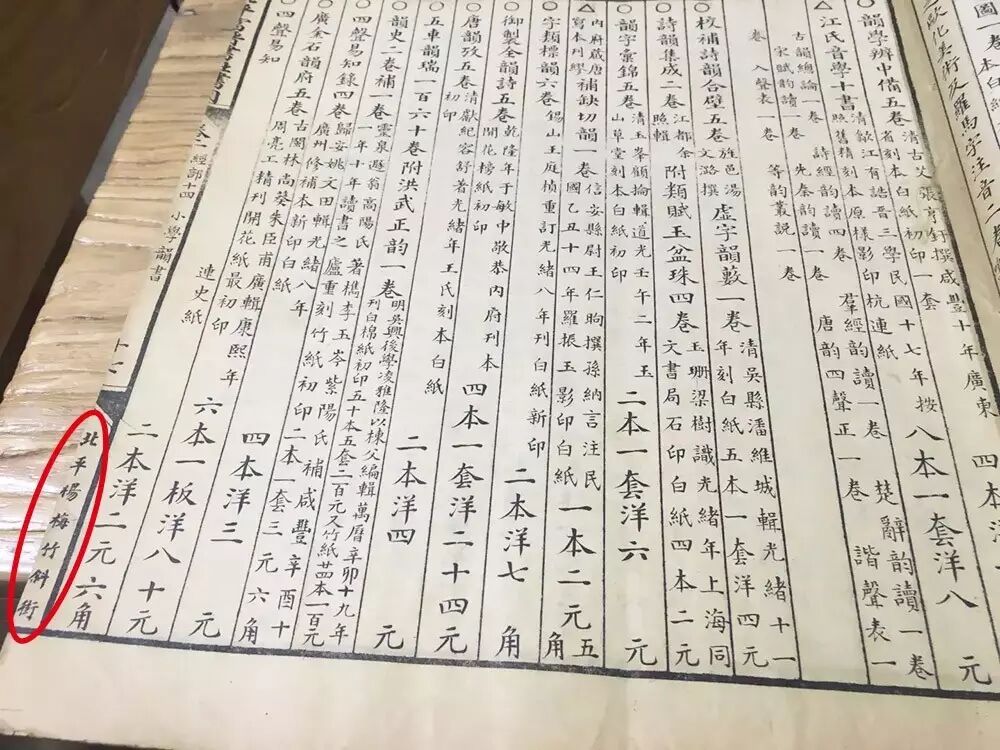 ○韻學辨中備五卷 清古攵張亨釬撰咸豐十年廣東省刻本白紙初印一套 四本洋
△江氏音學十書 清歙江有誥晉三學民國十七年按照舊精刻本原樣影印杭連紙 八本一套洋八元
古韻總論一卷 詩經韵讀四卷 羣經韵讀一卷 楚辭韵讀一卷
宋賦韵讀一卷 先秦韵讀一卷 唐韵四聲正一卷 諧聲表一
卷 入聲表一卷 等韵叢說一卷
○校補詩韻合璧五卷 旌邑湯文潞撰 虛字韻藪一卷 清吳縣潘維城輯光緒十一年刻白紙五本一套洋四元
○詩韻集成二卷 江都余照輯 附類賦玉盆珠四卷 玉珊梁樹識光緒年上海同文書局石印白紙四本二元
○韻字彙錦五卷 清玉峯顧掄輯道光壬午二年玉山草堂刻本白紙初印 二本一套洋六元
△內府藏唐寫本刊謬補缺切韻一卷 信安縣尉王仁昫撰孫納言注民國乙丑十四年羅振玉影印白紙 一本二元五角
○字類標韻六卷 錫山王庭楨重訂光緒八年刊白紙新印 二本洋七角
○御製全韻詩五卷 乾隆年于敏中敬恭內府刊本開花榜紙初印 四本一套洋二十四元
○唐韻攷五卷 清獻紀容舒著光緒年王氏刻本白紙初印 二本洋四元
○五車韻瑞一百六十卷附洪武正韵一卷 明吳興後學凌雅隆以棟父編輯萬曆辛卯十九年刊白棉紙初印五十本五套二百元又竹紙廿四本一百元
○韻史二卷補一卷 靈泉遯翁高陽氏著檇李玉岑紫陽氏補咸豐辛酉十一年十年讀書之廬重刻竹紙初印 二本一套三元六角
○四聲易知錄四卷 歸安姚文田輯光緒八年廣州修補本新印白紙 四本洋三元
○廣金石韻府五卷 古閩林尚葵朱臣甫廣輯康熙年周亮工精刊開花紙最初印 六本一板洋八十元
○四聲易知 連史紙 二本洋二元六角
卷一 經部十四 小學韻書 北平楊梅竹斜街